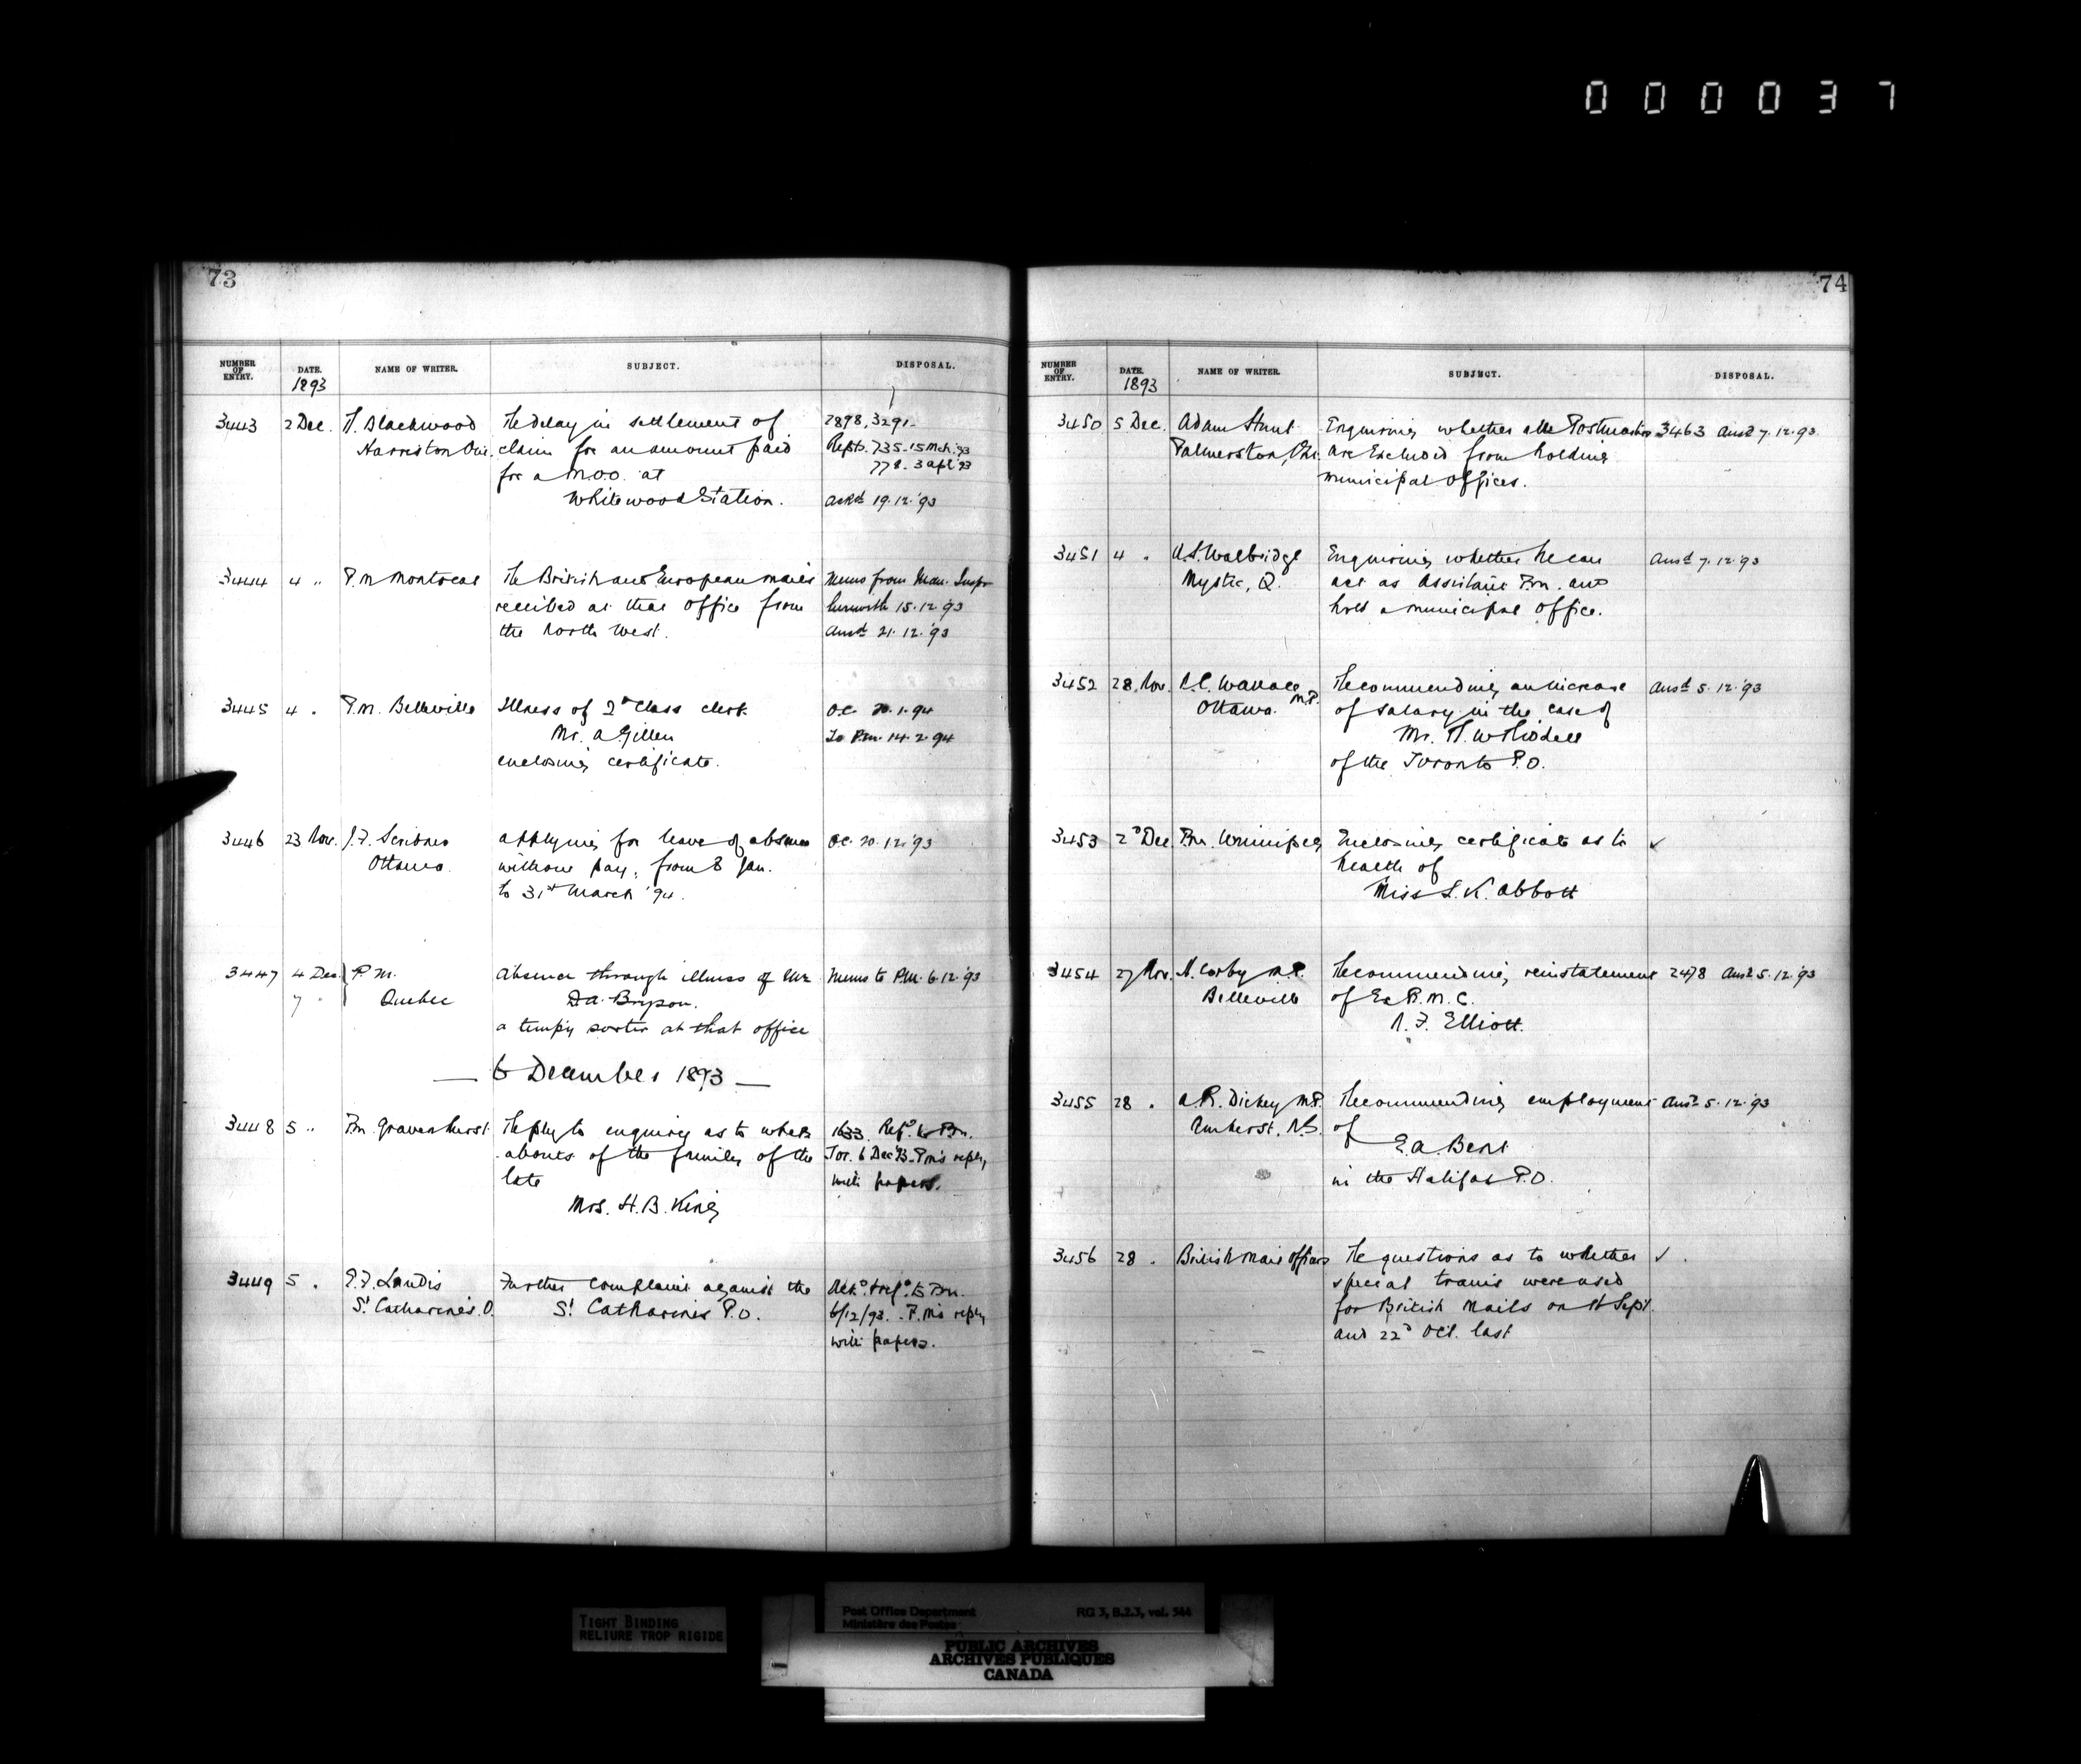 000037
73
NUMBER OF ENTRY. DATE. NAME OF WRITER. SUBJECT. DISPOSAL.
1893
3443 2 Dec. H. Blackwood Re delay in settlement of 2898, 3291
Harriston Ont. claim for an amount paid Repts. 735-15 Mch. '93
for a M.O.O. at 778. 3 Apl '93
Whitewood Station. Ackd 19.12.'93
3444 4 " P.M Montreal Re British and European mails Memo from Man. Inspr
received at that office from herewith 15.12.'93
the North West. Ansd. 21.12.'93
3445 4 " P.M. Belleville Illness of 2d Class clerk O.C. 20.1.94
Mr. A Gillen To P.M. 14.2.94
enclosing certificate.
3446 23 Nov. J.F. Scribner Applying for leave of absence O.C. 20.12.'93
Ottawa. without pay, from 8 Jan.
to 31st March '94.
3447 4 Dec. P.M. Absence through illness of Mr Memo to P.M. 6.12.'93
7 " Quebec D.A. Bryson.
a tempy sorter at that office
— 6 December 1893 —
3448 5 " P.M. Gravenhurst. Reply to enquiry as to where 1633. Refd. to P.M.
abouts of the family of the Tor. 6 Dec '93. P.M's reply
late with papers.
Mrs. H.B. King
3449 5 " Landis Further complaint against the Ackd. & refd. to P.M.
St Catharines. O. St Catharines P.O. 6/12/93. P.M's reply
with papers.
74
NUMBER OF ENTRY. DATE. NAME OF WRITER. SUBJECT. DISPOSAL.
1893
3450 5 Dec. Adam Enquiring whether all Postmasters 3463 Ansd 7.12.93
Palmerston, Ont. are excluded from holding
municipal offices.
3451 4 " A.S. Walbridge Enquiring whether he can Ansd 7.12.93
Mystic, Q. act as Assistant P.M. and
hold a municipal office.
3452 28 Nov. Wallace M.P. Recommending an increase Ansd 5.12.'93
Ottawa. of salary in the case of
Mr.
of the Toronto P.O.
3453 2d Dec P.M. Winnipeg Enclosing certificate as to ✓
health of
Miss L.K. Abbott
3454 27 Nov. H. Corby M.P. Recommending reinstatement 2478 Ansd 5.12.'93
Belleville of Ex R.M.C.
Elliott.
3455 28 " A.R. Dickey M.P. Recommending employment Ansd 5.12.'93
Amherst, N.S. of
E.A. Bent
in the Halifax P.O.
3456 28 " British Mail Officers Re questions as to whether ✓
special trains were used
for British Mails on Sept.
and 22d Oct. last
TIGHT BINDING
RELIURE TROP RIGIDE
Post Office Department RG 3, B.2.3, vol. 344
Ministère des Postes
PUBLIC ARCHIVES
ARCHIVES PUBLIQUES
CANADA